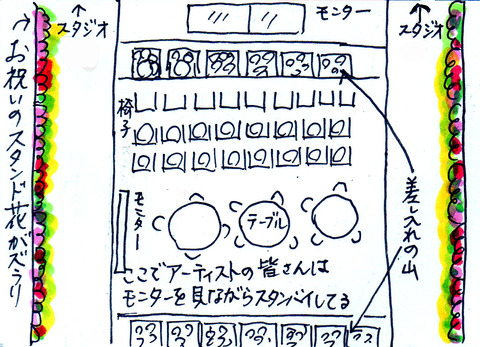 モニター
↑
スタジオ
↑
スタジオ
→お祝いのスタンド花がズラリ
椅子
差し入れの山
モニター
テーブル
ここでアーティストの皆さんは
モニターを見ながらスタンバイしてる